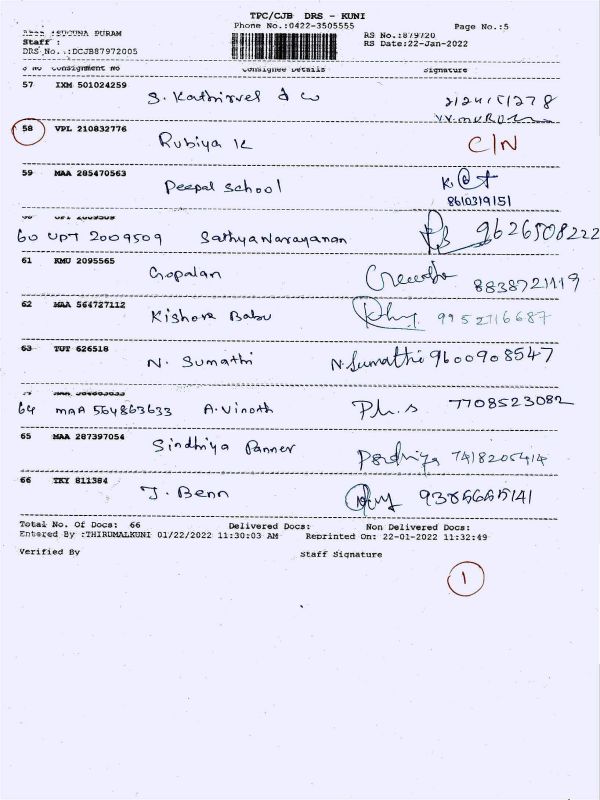 TPC/CJB DRS - KUNI
Phone No.:0422-3505555 Page No.:5
:SUGUNA PURAM RS No.:879720
Staff : RS Date:22-Jan-2022
DRS No.:DCJB87972005
S No Consignment No Consignee Details Signature
57 IXM 501024259 S. Kathirvel
58 VPL 210832776 Rubiya K C/N
59 MAA 285470563 Peepal School
8610319151
60 UPT 2009509
60 UPT 2009509 Sathya Narayanan 9626508222
61 KMU 2095565 Gopalan 8838721119
62 MAA 564727112 Kishore Babu 9952716687
63 TUT 626518 N. Sumathi N. Sumathi 9600908547
64 MAA 564863633
64 MAA 564863633 A. Vinoth 7708523082
65 MAA 287397054 Sindhiya Panner 7418205414
66 TKY 811384 J. Benn
Total No. Of Docs: 66 Delivered Docs: Non Delivered Docs:
Entered By :THIRUMALKUNI 01/22/2022 11:30:03 AM Reprinted On: 22-01-2022 11:32:49
Verified By Staff Signature
1